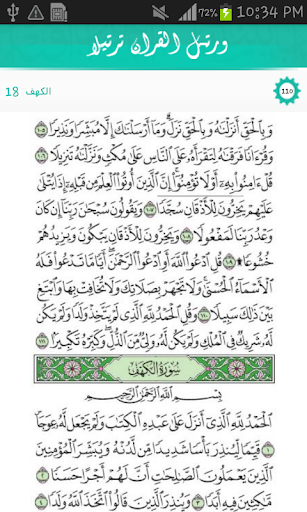 72% 10:34 PM
ورتل القرآن ترتيلا
الكهف 18
110
وَبِالْحَقِّ أَنزَلْنَاهُ وَبِالْحَقِّ نَزَلَ وَمَا أَرْسَلْنَاكَ إِلَّا مُبَشِّرًا وَنَذِيرًا ١٠٥
وَقُرْآنًا فَرَقْنَاهُ لِتَقْرَأَهُ عَلَى النَّاسِ عَلَىٰ مُكْثٍ وَنَزَّلْنَاهُ تَنزِيلًا ١٠٦
قُلْ آمِنُوا بِهِ أَوْ لَا تُؤْمِنُوا إِنَّ الَّذِينَ أُوتُوا الْعِلْمَ مِن قَبْلِهِ إِذَا يُتْلَىٰ
عَلَيْهِمْ يَخِرُّونَ لِلْأَذْقَانِ سُجَّدًا ١٠٧ وَيَقُولُونَ سُبْحَانَ رَبِّنَا إِن كَانَ
وَعْدُ رَبِّنَا لَمَفْعُولًا ١٠٨ وَيَخِرُّونَ لِلْأَذْقَانِ يَبْكُونَ وَيَزِيدُهُمْ
خُشُوعًا ١٠٩ قُلِ ادْعُوا اللَّهَ أَوِ ادْعُوا الرَّحْمَٰنَ أَيًّا مَّا تَدْعُوا فَلَهُ
الْأَسْمَاءُ الْحُسْنَىٰ وَلَا تَجْهَرْ بِصَلَاتِكَ وَلَا تُخَافِتْ بِهَا وَابْتَغِ
بَيْنَ ذَٰلِكَ سَبِيلًا ١١٠ وَقُلِ الْحَمْدُ لِلَّهِ الَّذِي لَمْ يَتَّخِذْ وَلَدًا وَلَمْ يَكُن
لَّهُ شَرِيكٌ فِي الْمُلْكِ وَلَمْ يَكُن لَّهُ وَلِيٌّ مِّنَ الذُّلِّ وَكَبِّرْهُ تَكْبِيرًا ١١١
سُورَةُ الْكَهْفِ
بِسْمِ اللَّهِ الرَّحْمَٰنِ الرَّحِيمِ
الْحَمْدُ لِلَّهِ الَّذِي أَنزَلَ عَلَىٰ عَبْدِهِ الْكِتَابَ وَلَمْ يَجْعَل لَّهُ عِوَجًا
١ قَيِّمًا لِّيُنذِرَ بَأْسًا شَدِيدًا مِّن لَّدُنْهُ وَيُبَشِّرَ الْمُؤْمِنِينَ
الَّذِينَ يَعْمَلُونَ الصَّالِحَاتِ أَنَّ لَهُمْ أَجْرًا حَسَنًا ٢
مَّاكِثِينَ فِيهِ أَبَدًا ٣ وَيُنذِرَ الَّذِينَ قَالُوا اتَّخَذَ اللَّهُ وَلَدًا ٤